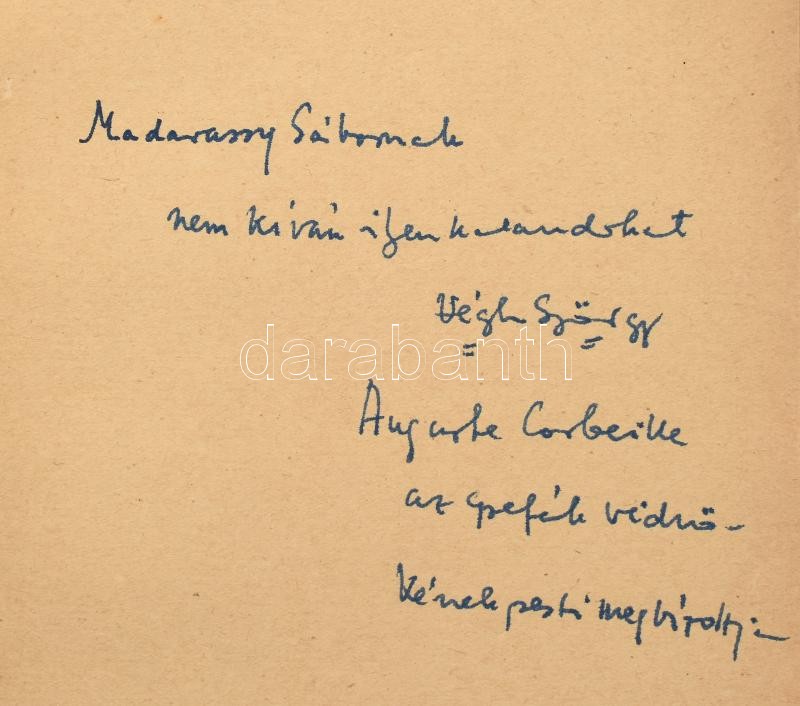 Madarassy Gábornak
nem kíván ilyen kalandokat
Végh György
darabanth
Auguste Corbeille
az grefák védnö-
kének pesti megbízottja